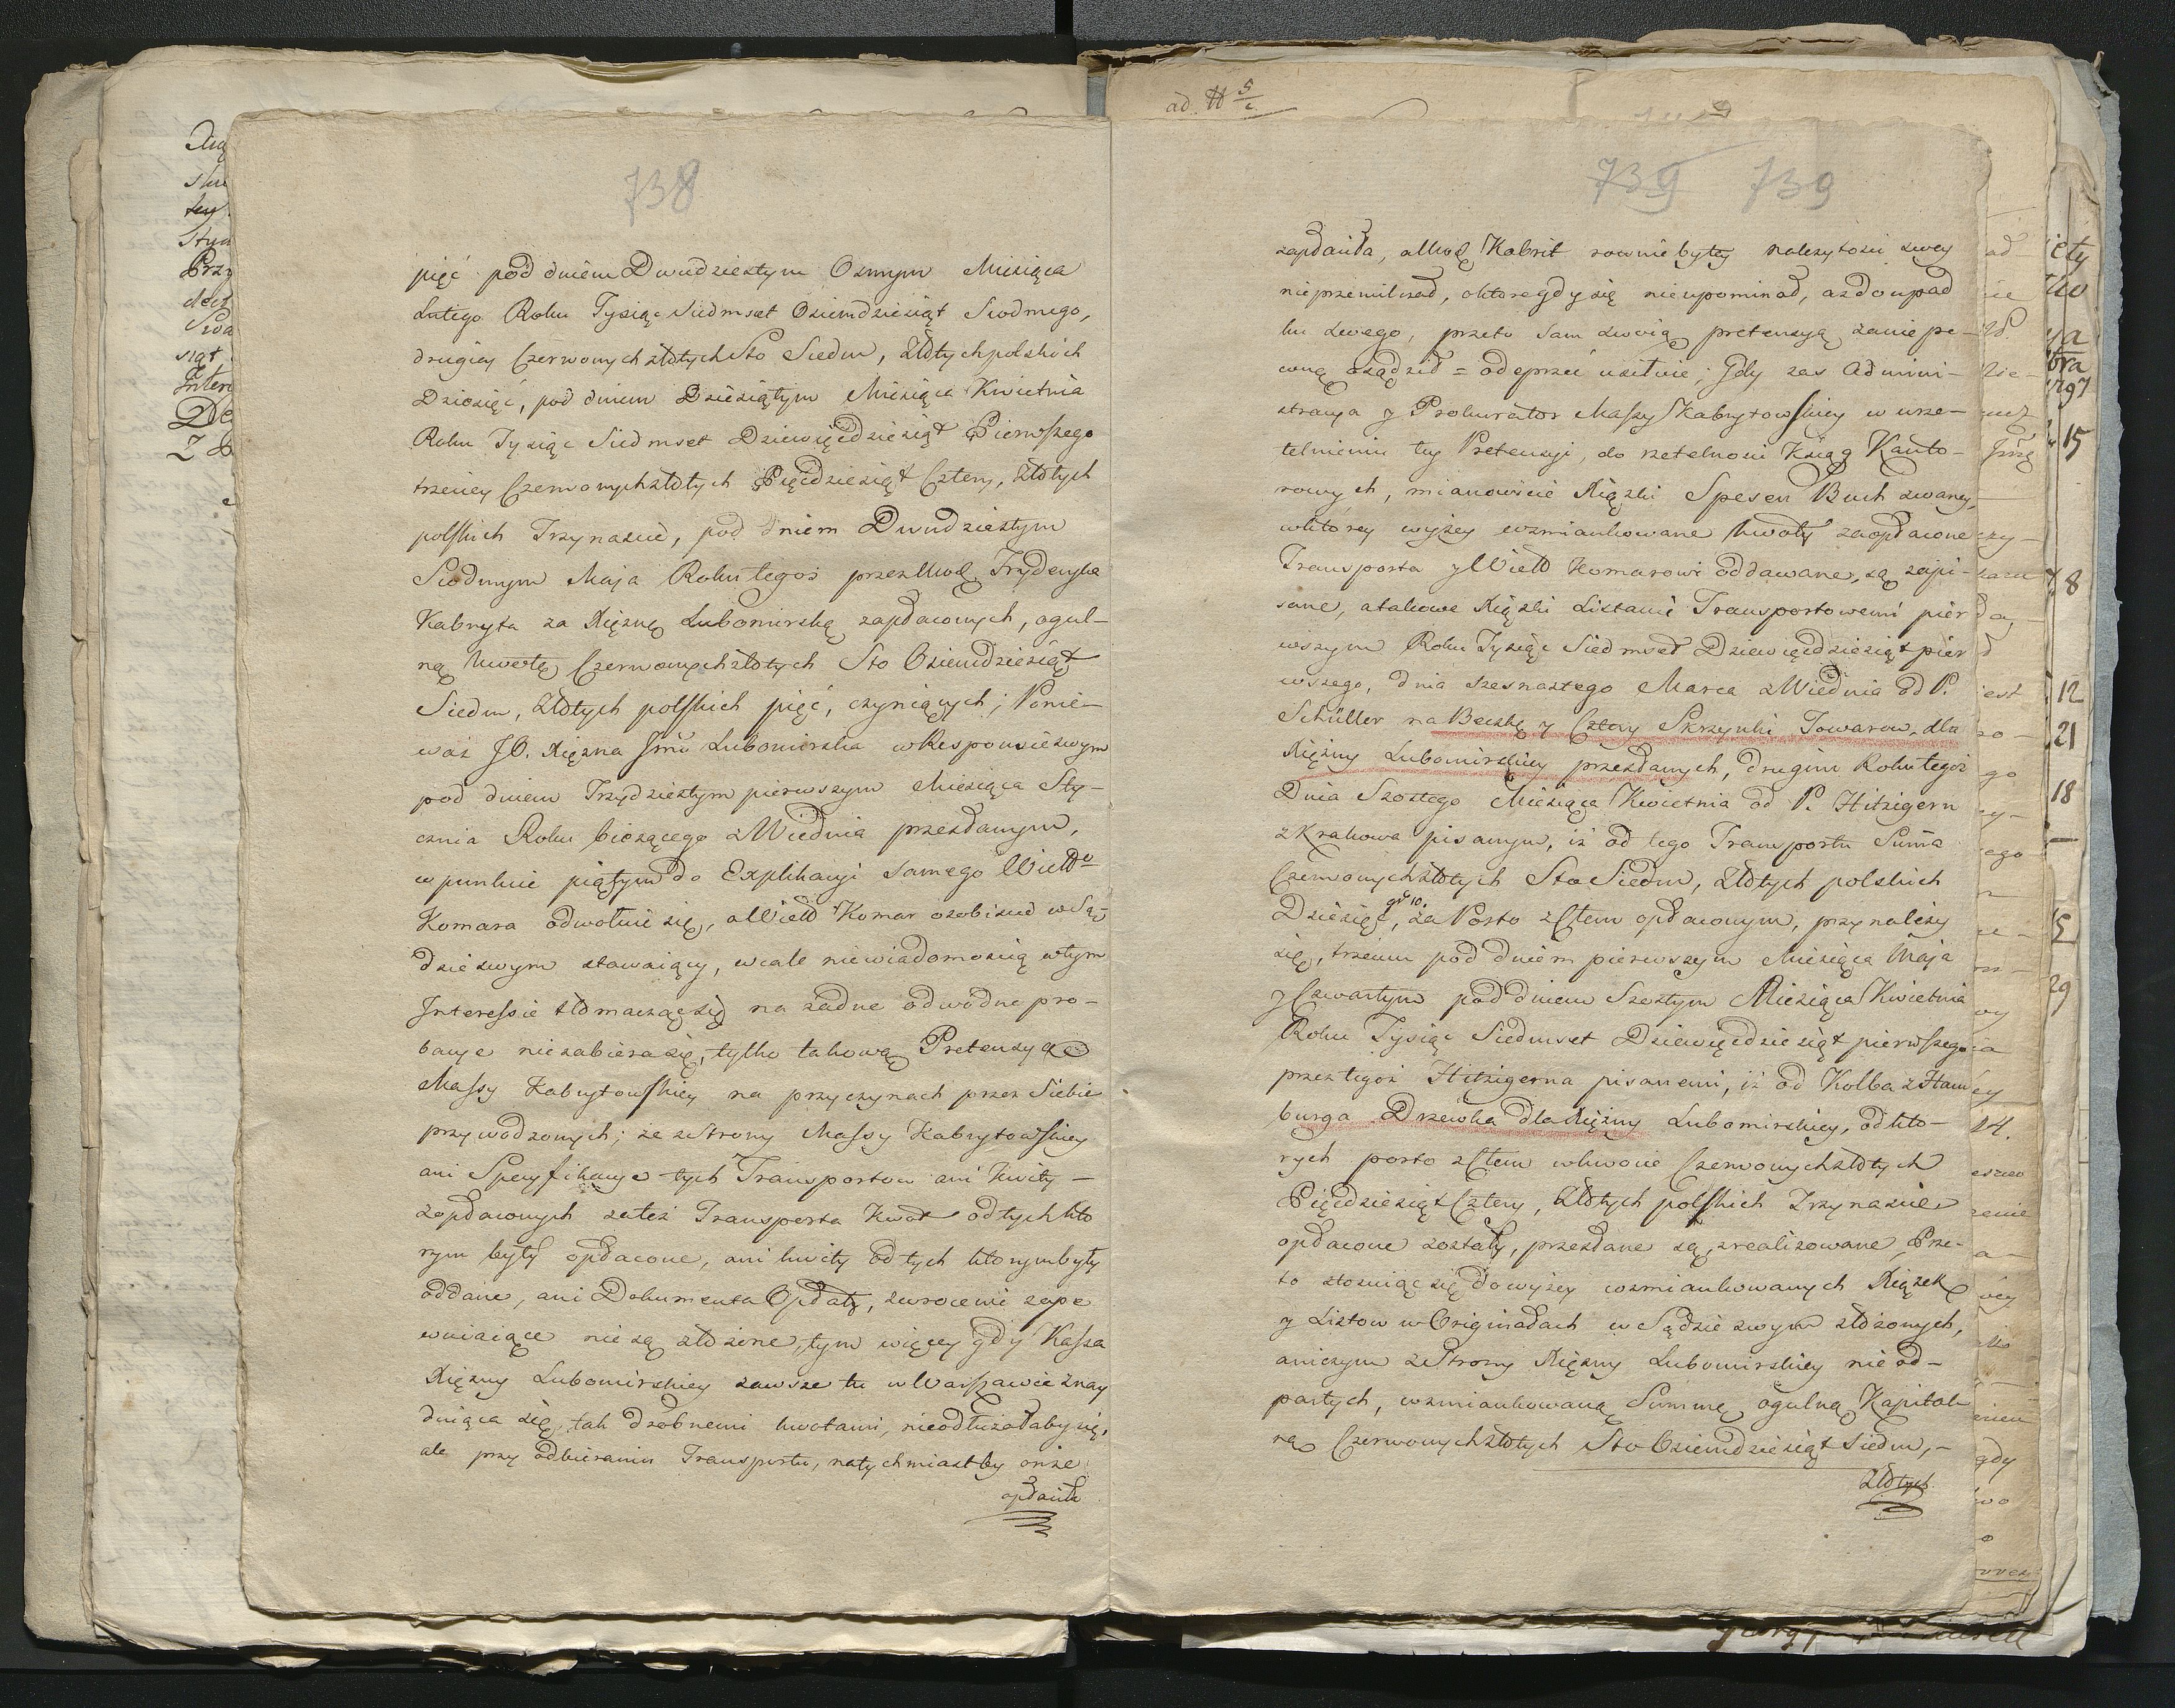 738
pięć pod dniem Dwudziestym Osmym Miesiąca
Lutego Roku Tysiąc Siedmset Osiemdziesiąt Siodmego,
drugiey Czerwonych złotych Sto Siedm, Złotych polskich
Dziesięć, pod dniem Dziesiątym Miesiąca Kwietnia
Roku Tysiąc Siedmset Dziewięćdziesiąt Pierwszego
trzeciey Czerwonych złotych Pięćdziesiąt Cztery, Złotych
polskich Trzynaście, pod dniem Dwudziestym
Siodmym Maja Roku tegoż przez Frydryka
Kabryta za Xiężnę Lubomirską zapłaconych, ogul-
ną kwotę Czerwonych złotych Sto Osiemdziesiąt
Siedm, Złotych polskich pięć, czyniących; Ponie-
waż JO. Xiężna Jmć Lubomirska w Responsie swym
pod dniem Trzydziestym pierwszym Miesiąca Sty-
cznia Roku bieżącego z Wiednia przesłanym,
w punkcie piątym do Explikacyi samego Wielło
Komara odwołuie się, a Wiell Komar osobiście w Są-
dzie swym stawaiący, wcale niewiadomością w tym
Interessie tłomacząc się na żadne odwodne pro-
bacye niezabiera się, tylko takową Pretensyą
Massy Kabrytowskiey na przyczynach przez Siebie
przywodzonych; że z Strony Massy Kabrytowskiey
ani Specyfikacye tych Transportow ani Kwity –
zapłaconych zateż Transporta Kwot od tych kto
rym były opłacone, ani kwity od tych ktorym były
oddane, ani Dokumenta Opłaty, zwrocenie zape
wniaiące nie są złożone, tym więcey gdy Kassa
Xiężny Lubomirskiey zawsze tu w Warszawie znay
duiąca się, tak drobnemi kwotami, nieodłużałaby się,
ale przy odbieraniu Transportu, natychmiast by onże
opłaciła
ad. # 5/c
739 739
zapłaciła, a Kabrit rownie byłey należytości swey
nieprzemilczał, o ktore gdy się nieupominał, aż do upad
ku swego, przeto sam swoią pretensyą za niepe-
wną osądził = odeprzeć usiłuie; Gdy zaś Admini-
stracya y Prokurator Massy Kabrytowskiey w urze-
telnieniu tey Pretensyi, do rzetelności Xsiąg Kanto-
rowych, mianowicie Xiążki Spesen Buch zwaney,
w ktorey wyżey wzmiankowane kwoty za opłacone
Transporta y Wiell Komarowi oddawane, są zapi-
sane, a takowe Xiążki Listami Transportowemi pier
wszym Roku Tysiąc Siedmset Dziewięćdziesiąt pier
wszego, dnia szesnastego Marca z Wiednia od P.
Schüller na Beczkę y Cztery Skrzynki Towarow, dla
Xiężny Lubomirskiey przesłanych, drugim Roku tegoż
Dnia Szostego Miesiąca Kwietnia od P. Hitzigern
z Krakowa pisanym, iż od tego Transportu Suma
Czerwonych złotych Sto Siedm, Złotych polskich
Dziesięć, gr 10. za Porto z Cłem opłaconym, przynależy
się, trzecim pod dniem pierwszym Miesiąca Maja
y Czwartym pod dniem Szostym Miesiąca Kwietnia
Roku Tysiąc Siedmset Dziewięćdziesiąt pierwszego
przez tegoż Hitzigerna pisanemi, iż od Kolba z Ham
burga Drzewka dla Xiężny Lubomirskiey, od kto-
rych porto z Cłem w kwocie Czerwonych złotych
Pięćdziesiąt Cztery, Złotych polskich Trzynaście
opłacone zostały, przesłane są, zrealizowane, Prze-
to stosuiąc się do wyżey wzmiankowanych Xiążek
y Listow w Originałach w Sądzie swym złożonych,
a niczym z Strony Xiężny Lubomirskiey nie od-
partych, wzmiankowaną Summę ogulną Kapital-
ną Czerwonych złotych Sto Osiemdziesiąt siedm, –
Złotych